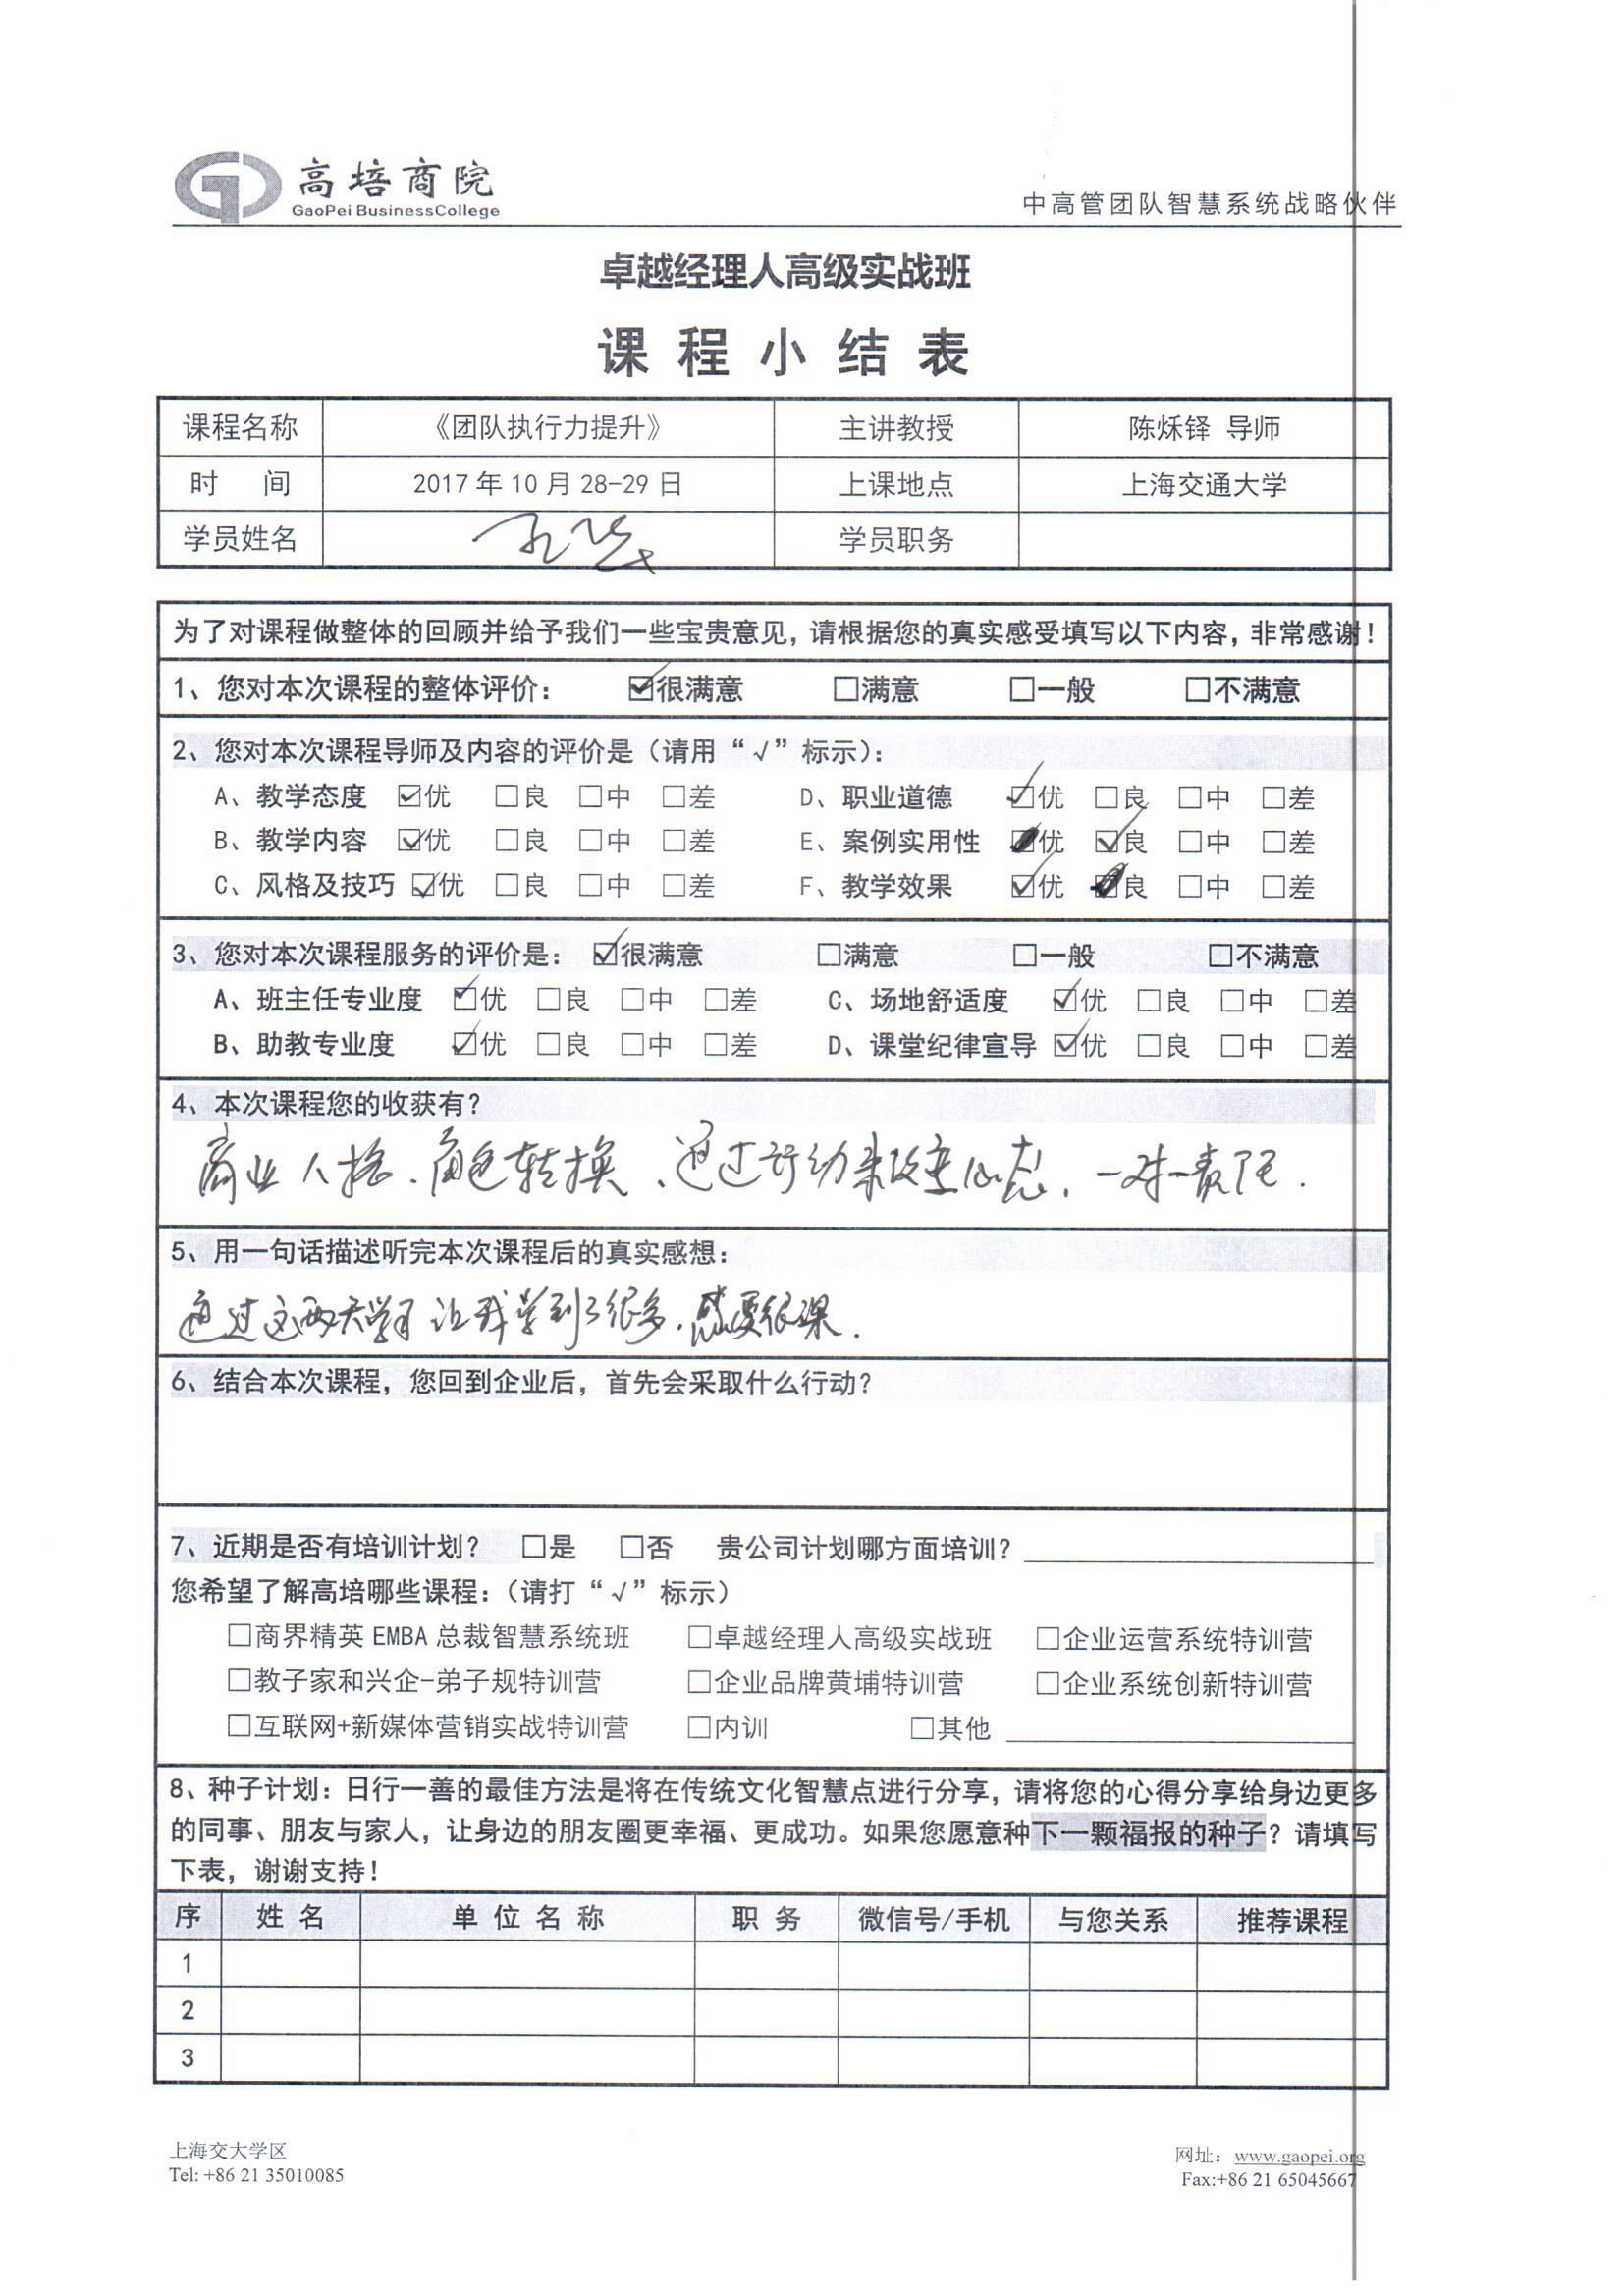 高培商院
GaoPei BusinessCollege
中高管团队智慧系统战略伙伴
卓越经理人高级实战班
课程小结表
课程名称 《团队执行力提升》 主讲教授 陈烁铎 导师
时 间 2017年10月28-29日 上课地点 上海交通大学
学员姓名 学员职务
为了对课程做整体的回顾并给予我们一些宝贵意见，请根据您的真实感受填写以下内容，非常感谢！
1、您对本次课程的整体评价： ☑很满意 □满意 □一般 □不满意
2、您对本次课程导师及内容的评价是（请用“√”标示）：
A、教学态度 ☑优 □良 □中 □差 D、职业道德 ☑优 □良 □中 □差
B、教学内容 ☑优 □良 □中 □差 E、案例实用性 ■优 ☑良 □中 □差
C、风格及技巧 ☑优 □良 □中 □差 F、教学效果 ☑优 ■良 □中 □差
3、您对本次课程服务的评价是： ☑很满意 □满意 □一般 □不满意
A、班主任专业度 ☑优 □良 □中 □差 C、场地舒适度 ☑优 □良 □中 □差
B、助教专业度 ☑优 □良 □中 □差 D、课堂纪律宣导 ☑优 □良 □中 □差
4、本次课程您的收获有？
商业人格、角色转换、通过行动来改变心态，一对一责任．
5、用一句话描述听完本次课程后的真实感想：
通过这两天学习 让我学到了很多，感受很深．
6、结合本次课程，您回到企业后，首先会采取什么行动？
7、近期是否有培训计划？ □是 □否 贵公司计划哪方面培训？
您希望了解高培哪些课程：（请打“√”标示）
□商界精英EMBA总裁智慧系统班 □卓越经理人高级实战班 □企业运营系统特训营
□教子家和兴企-弟子规特训营 □企业品牌黄埔特训营 □企业系统创新特训营
□互联网+新媒体营销实战特训营 □内训 □其他
8、种子计划：日行一善的最佳方法是将在传统文化智慧点进行分享，请将您的心得分享给身边更多
的同事、朋友与家人，让身边的朋友圈更幸福、更成功。如果您愿意种下一颗福报的种子？请填写
下表，谢谢支持！
序 姓名 单位名称 职务 微信号/手机 与您关系 推荐课程
1
2
3
上海交大学区 网址：www.gaopei.org
Tel: +86 21 35010085 Fax:+86 21 65045667